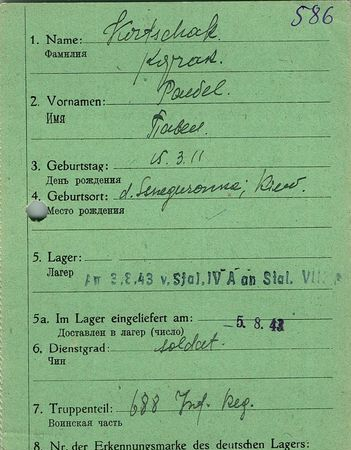 586
1. Name: Kortschak
Фамилия
2. Vornamen: Pawel.
Имя Павел.
3. Geburtstag: 15.3.11
День рождения
4. Geburtsort: d. Kiew.
Место рождения
5. Lager:
Лагерь
Am 3.8.43 v. Stal. IV A an Stal. VII
5a. Im Lager eingeliefert am: -5.8.43
Доставлен в лагерь (число)
6. Dienstgrad: soldat.
Чин
7. Truppenteil: 688 Inf. Reg.
Воинская часть
8. Nr. der Erkennungsmarke des deutschen Lagers: